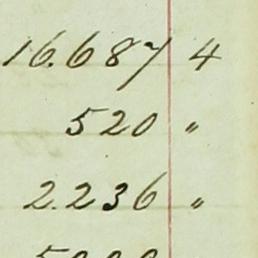 16.687 4
520 "
2.236 "